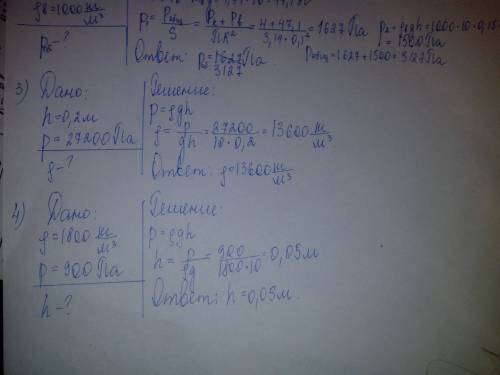 ρв=1000 кг/м³
Pв-?
P = Pобщ/S = (Pк + Pв)/ПR² = (4+47,1)/(3,14·0,1²) = 1627 Па
=1500Па
Pобщ=1627+1500=3127Па
Ответ:
3127
3) Дано:
h=0,2м
p=27200Па
ρ-?
Решение:
p=ρgh
ρ = p/gh = 27200/(10·0,2) = 13600 кг/м³
Ответ: ρ=13600 кг/м³
4) Дано:
ρ=1800 кг/м³
p=900 Па
h-?
Решение:
p=ρgh
h = p/ρg = 900/(1800·10) = 0,05м
Ответ: h=0,05м.